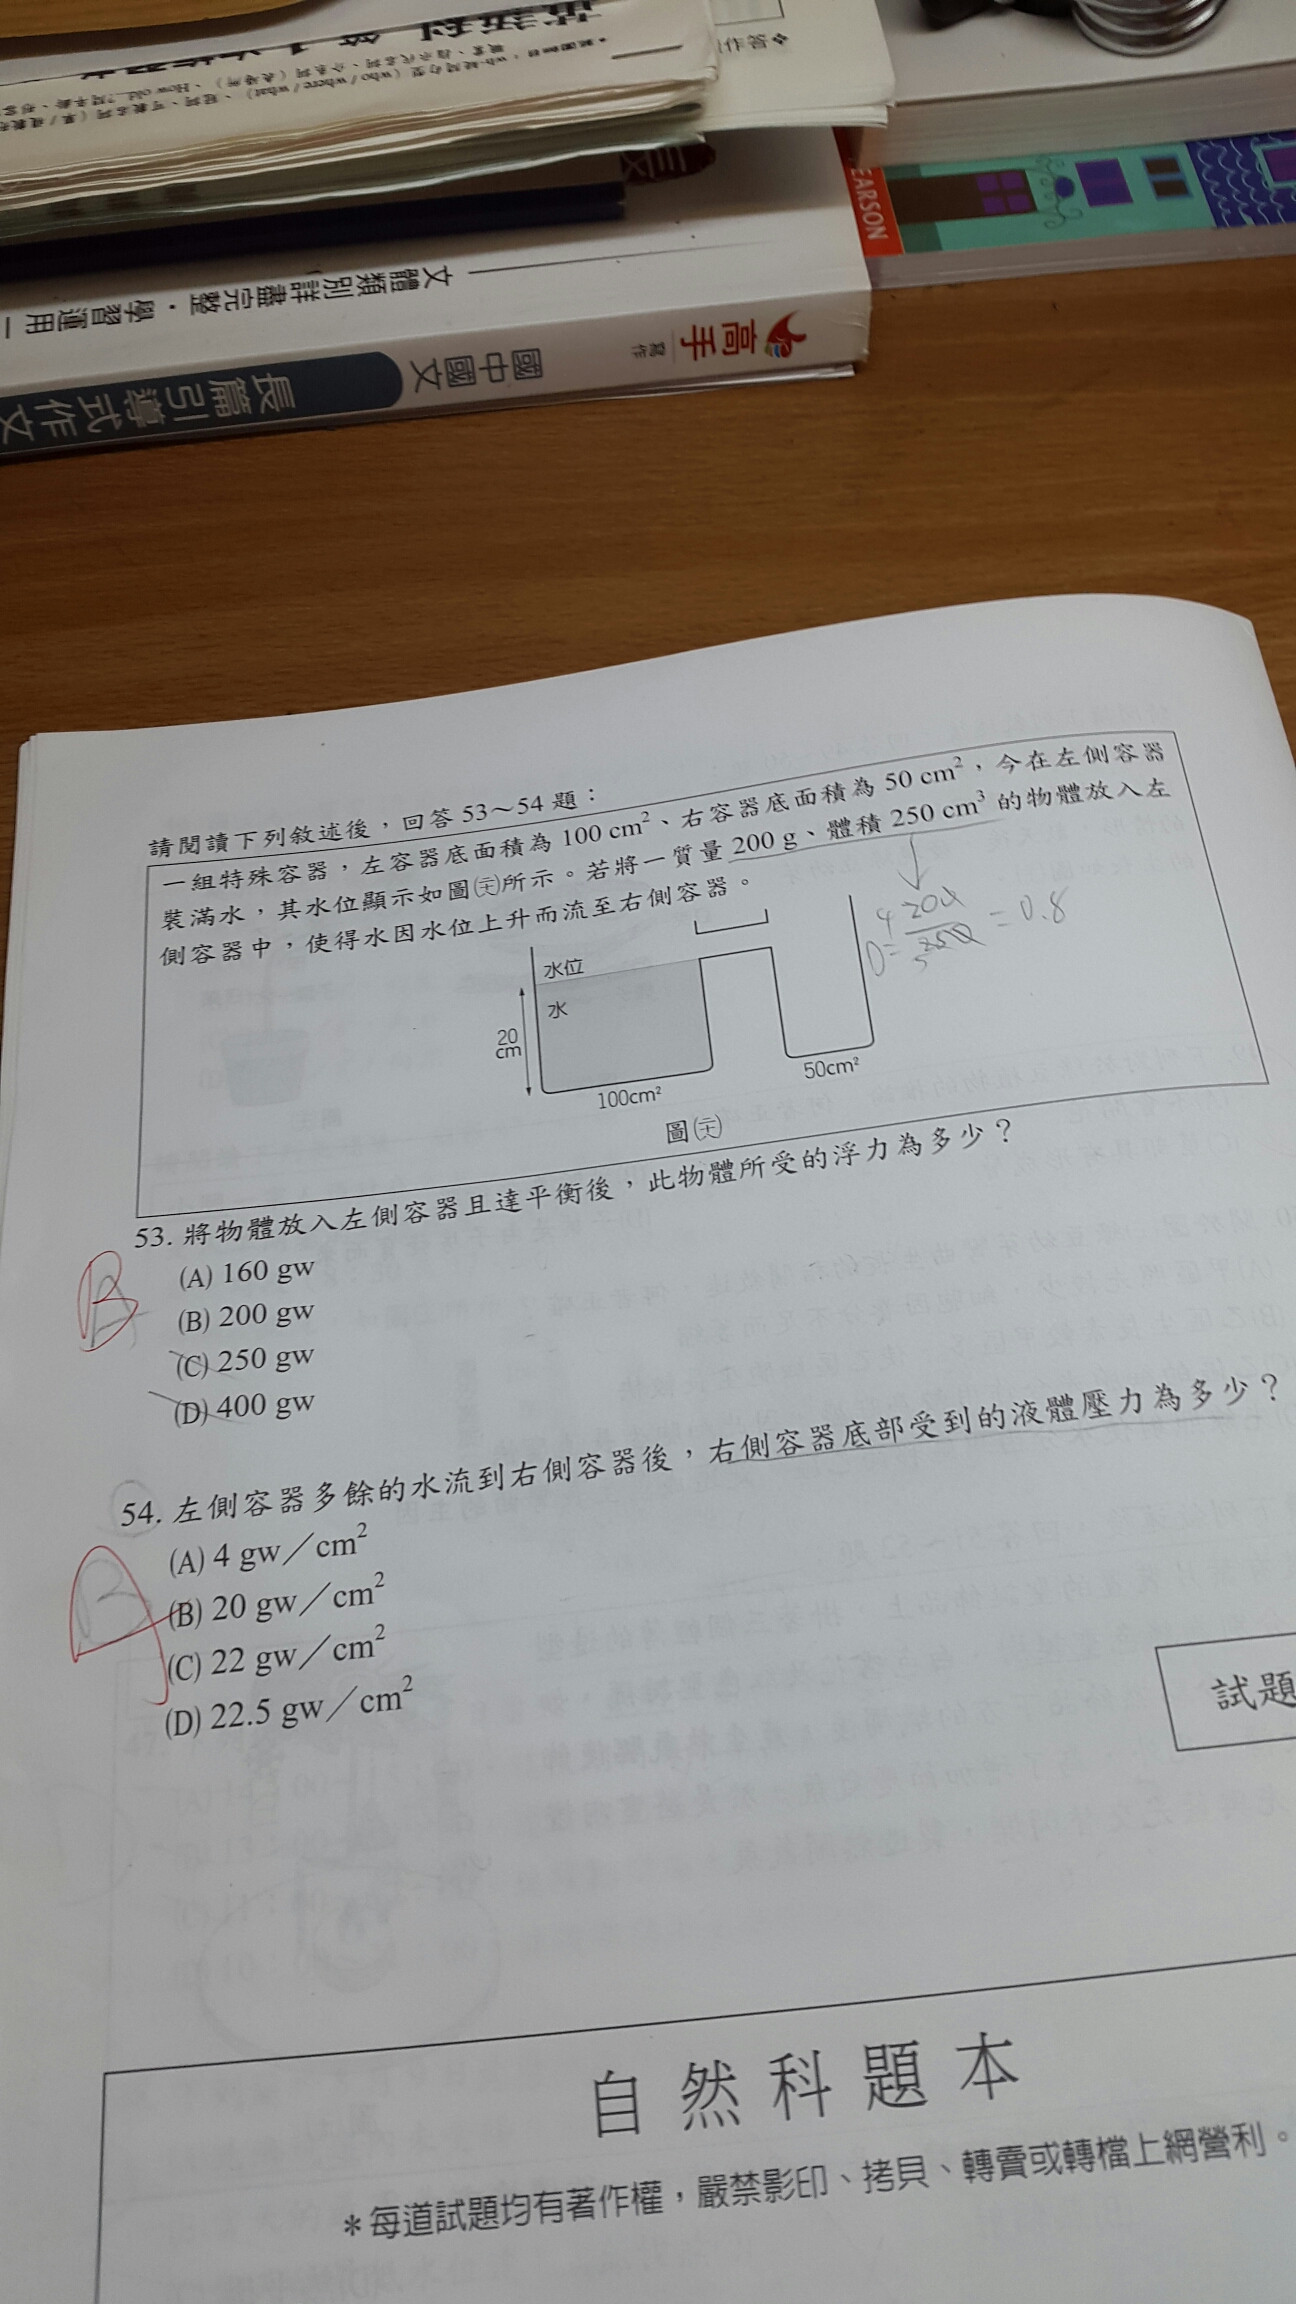 英語科 第1次複習考
wh-疑問句型（who / where / what）
How old...?
PEARSON
文體類別詳盡完整・學習運用
高手
寫作
國中國文
長篇引導式作文
請閱讀下列敘述後，回答 53～54 題：
一組特殊容器，左容器底面積為 100 cm²、右容器底面積為 50 cm²，今在左側容器
裝滿水，其水位顯示如圖(三)所示。若將一質量 200 g、體積 250 cm³ 的物體放入左
側容器中，使得水因水位上升而流至右側容器。
D= 200/250 = 0.8
4
5
水位
水
20
cm
100cm²
50cm²
53. 將物體放入左側容器且達平衡後，此物體所受的浮力為多少？
B
(A) 160 gw
(B) 200 gw
(C) 250 gw
(D) 400 gw
54. 左側容器多餘的水流到右側容器後，右側容器底部受到的液體壓力為多少？
A
(A) 4 gw／cm²
(B) 20 gw／cm²
(C) 22 gw／cm²
(D) 22.5 gw／cm²
試題
自然科題本
＊每道試題均有著作權，嚴禁影印、拷貝、轉賣或轉檔上網營利。